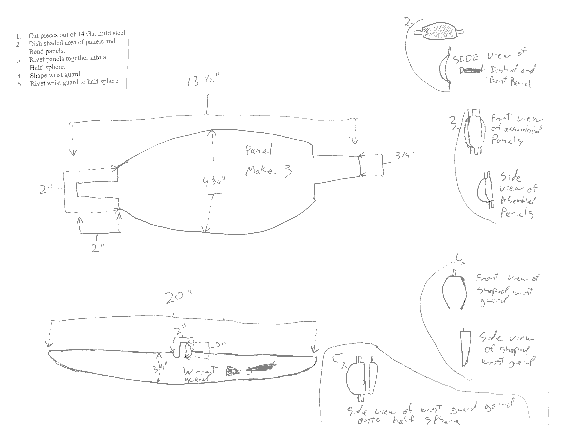 1. Cut pieces out of 14 Ga. mild steel
2. Dish shaded area of panels and
Bend panels.
3. Rivet panels together into a
Half sphere.
4. Shape wrist guard
5. Rivet wrist guard to half sphere
2.
SIDE View of
Dished and
Bent Panel
13 1/2"
Panel
Make 3
4 3/4"
3/4"
2"
2"
3.
Front view
of Assembled
Panels
Side
view of
Assembled
Panels
20"
2"
Wrist
4.
Front view of
shaped wrist
guard
Side view
of shaped
wrist guard
5.
Side view of wrist guard
onto half sphere